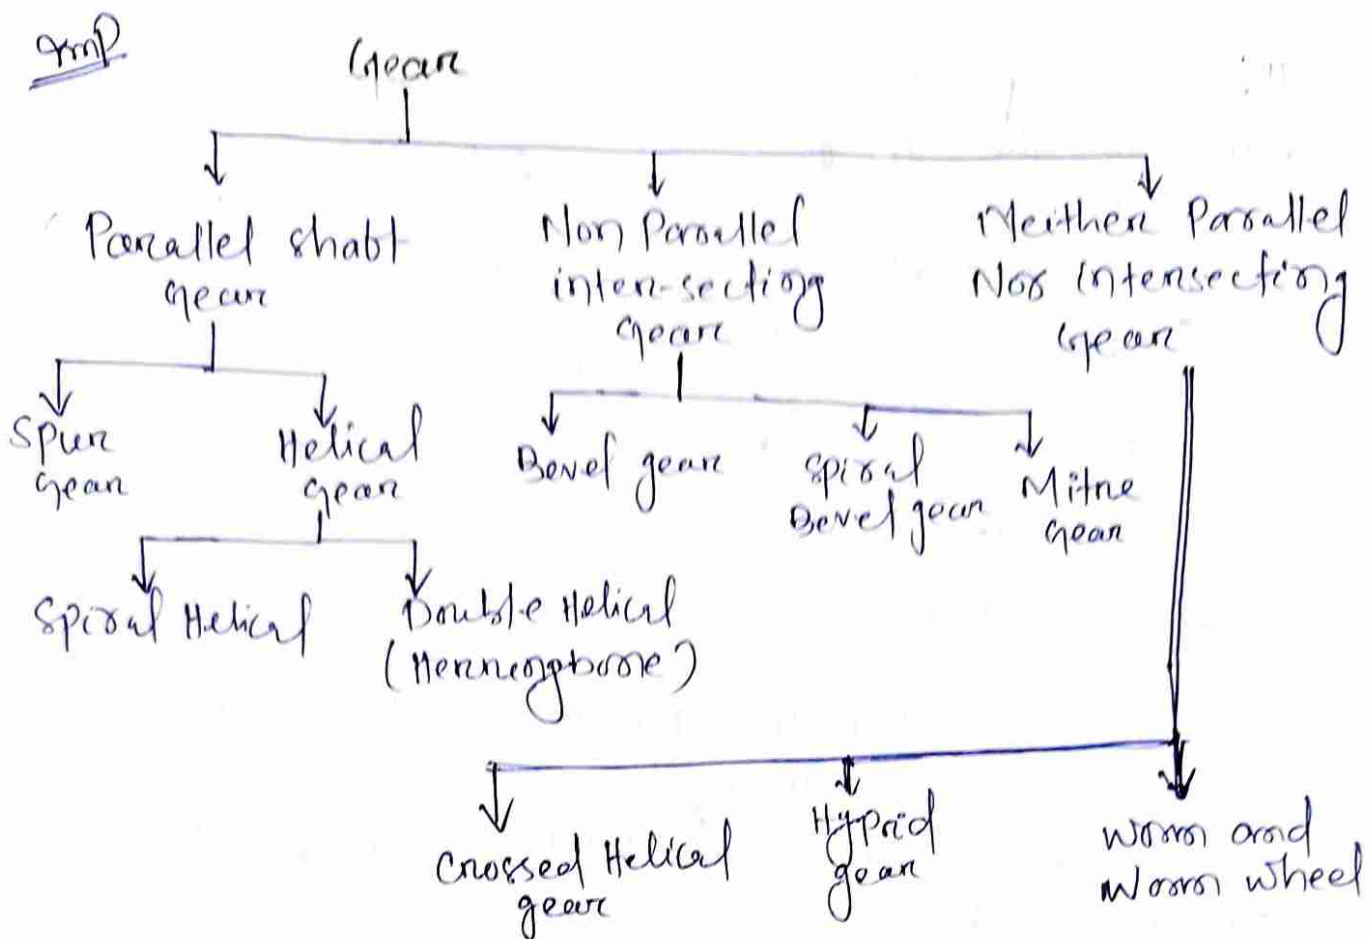 Imp
Gear
Parallel shaft
gear
Non Parallel
inter-secting
gear
Neither Parallel
Nor intersecting
gear
Spur
gear
Helical
gear
Bevel gear
Spiral
Bevel gear
Mitre
gear
Spiral Helical
Double Helical
(Herringbone)
Crossed Helical
gear
Hyprid
gear
Worm and
Worm wheel